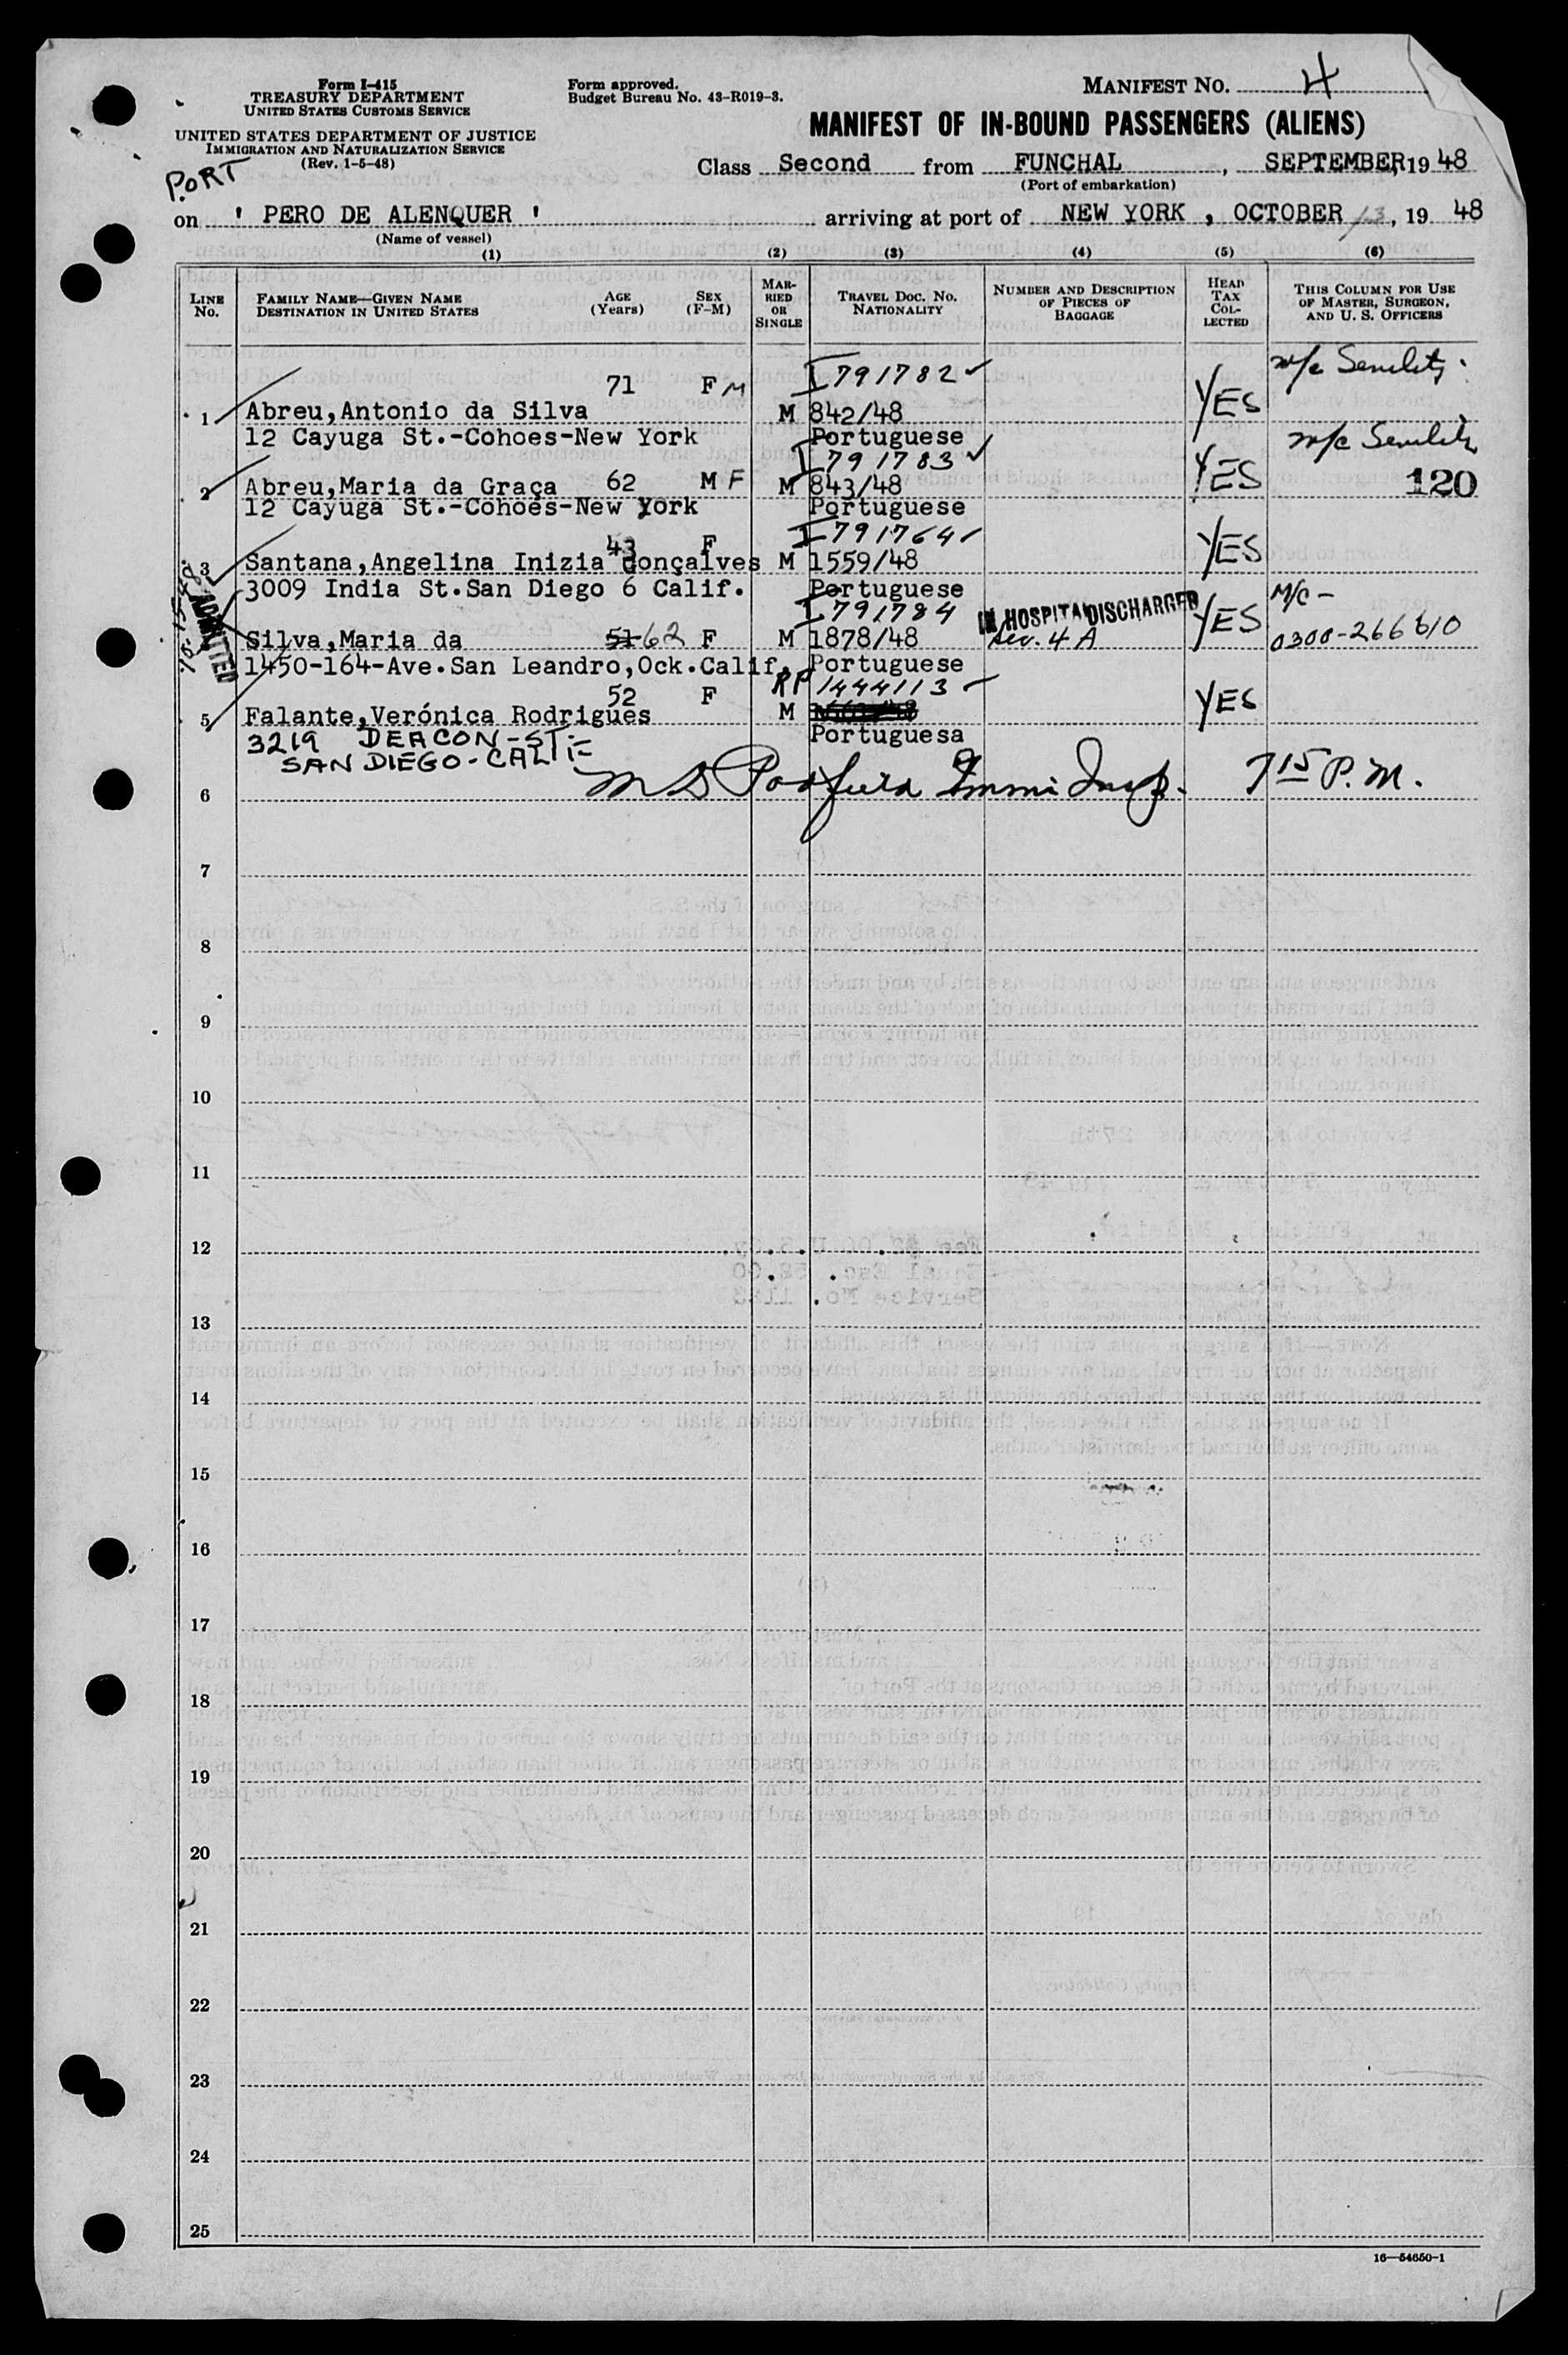 Form I-415
TREASURY DEPARTMENT
UNITED STATES CUSTOMS SERVICE
UNITED STATES DEPARTMENT OF JUSTICE
IMMIGRATION AND NATURALIZATION SERVICE
(Rev. 1-5-48)
Form approved.
Budget Bureau No. 43-R019-3.
MANIFEST NO. 4
MANIFEST OF IN-BOUND PASSENGERS (ALIENS)
Class Second from FUNCHAL, SEPTEMBER, 19 48
(Port of embarkation)
PORT
on ' PERO DE ALENQUER ' arriving at port of NEW YORK, OCTOBER 13, 19 48
(Name of vessel)
(1) (2) (3) (4) (5) (6)
LINE No. FAMILY NAME—GIVEN NAME DESTINATION IN UNITED STATES AGE (Years) SEX (F-M) MARRIED OR SINGLE TRAVEL DOC. NO. NATIONALITY NUMBER AND DESCRIPTION OF PIECES OF BAGGAGE HEAD TAX COLLECTED THIS COLUMN FOR USE OF MASTER, SURGEON, AND U. S. OFFICERS
71 F M I 791782 ✓ M/C Senility
1 Abreu,Antonio da Silva M 842/48 YES
12 Cayuga St.-Cohoes-New York Portuguese M/C Senility
I 791783 ✓
2 Abreu,Maria da Graça 62 M F M 843/48 YES 120
12 Cayuga St.-Cohoes-New York Portuguese
43 F I 791764 ✓
3 Santana,Angelina Inizia Gonçalves M 1559/48 YES
3009 India St.San Diego 6 Calif. Portuguese
ADMITTED I 791784 IN HOSPITAL DISCHARGED M/C -
Silva,Maria da 51 62 F M 1878/48 YES 0300-266610
1450-164-Ave.San Leandro,Ock.Calif. Portuguese
52 F RP 1444113
5 Falante,Verónica Rodrigues M YES
3219 DEACON-ST- Portuguesa
SAN DIEGO-CALIF
M D Padfield Immi Insp. 7 15 P.M.
6
7
8
9
10
11
12
13
14
15
16
17
18
19
20
21
22
23
24
25
16—54650-1